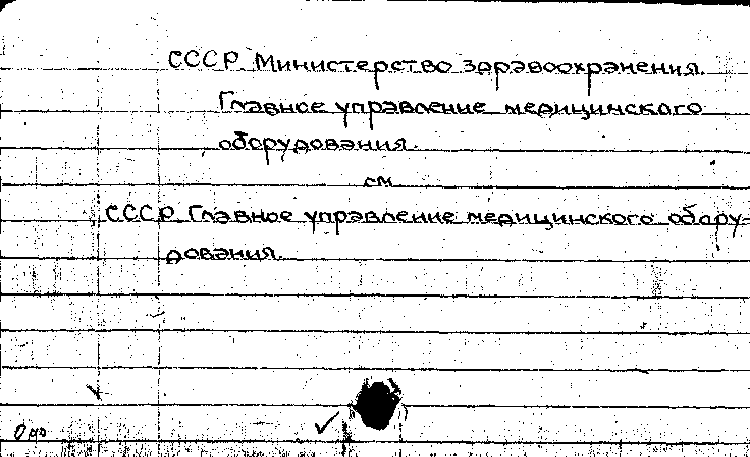 СССР. Министерство здравоохранения.
Главное управление медицинского
оборудования.
см
СССР. Главное управление медицинского обору-
дования.